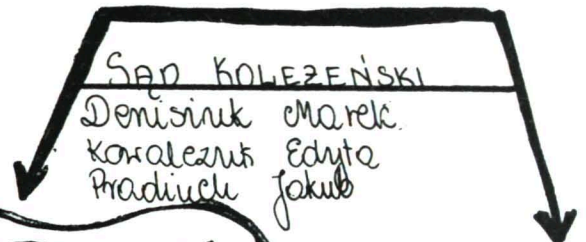 SĄD KOLEŻEŃSKI
Denisiuk Marek.
Kowalczuk Edyta
Pradiuch Jakub